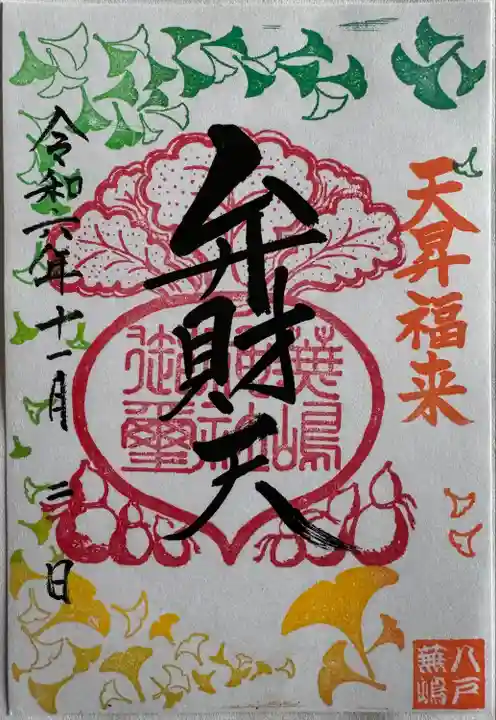 天昇福来
弁財天
蕪嶋
神社
御璽
令和六年十一月二日
八戸
蕪嶋